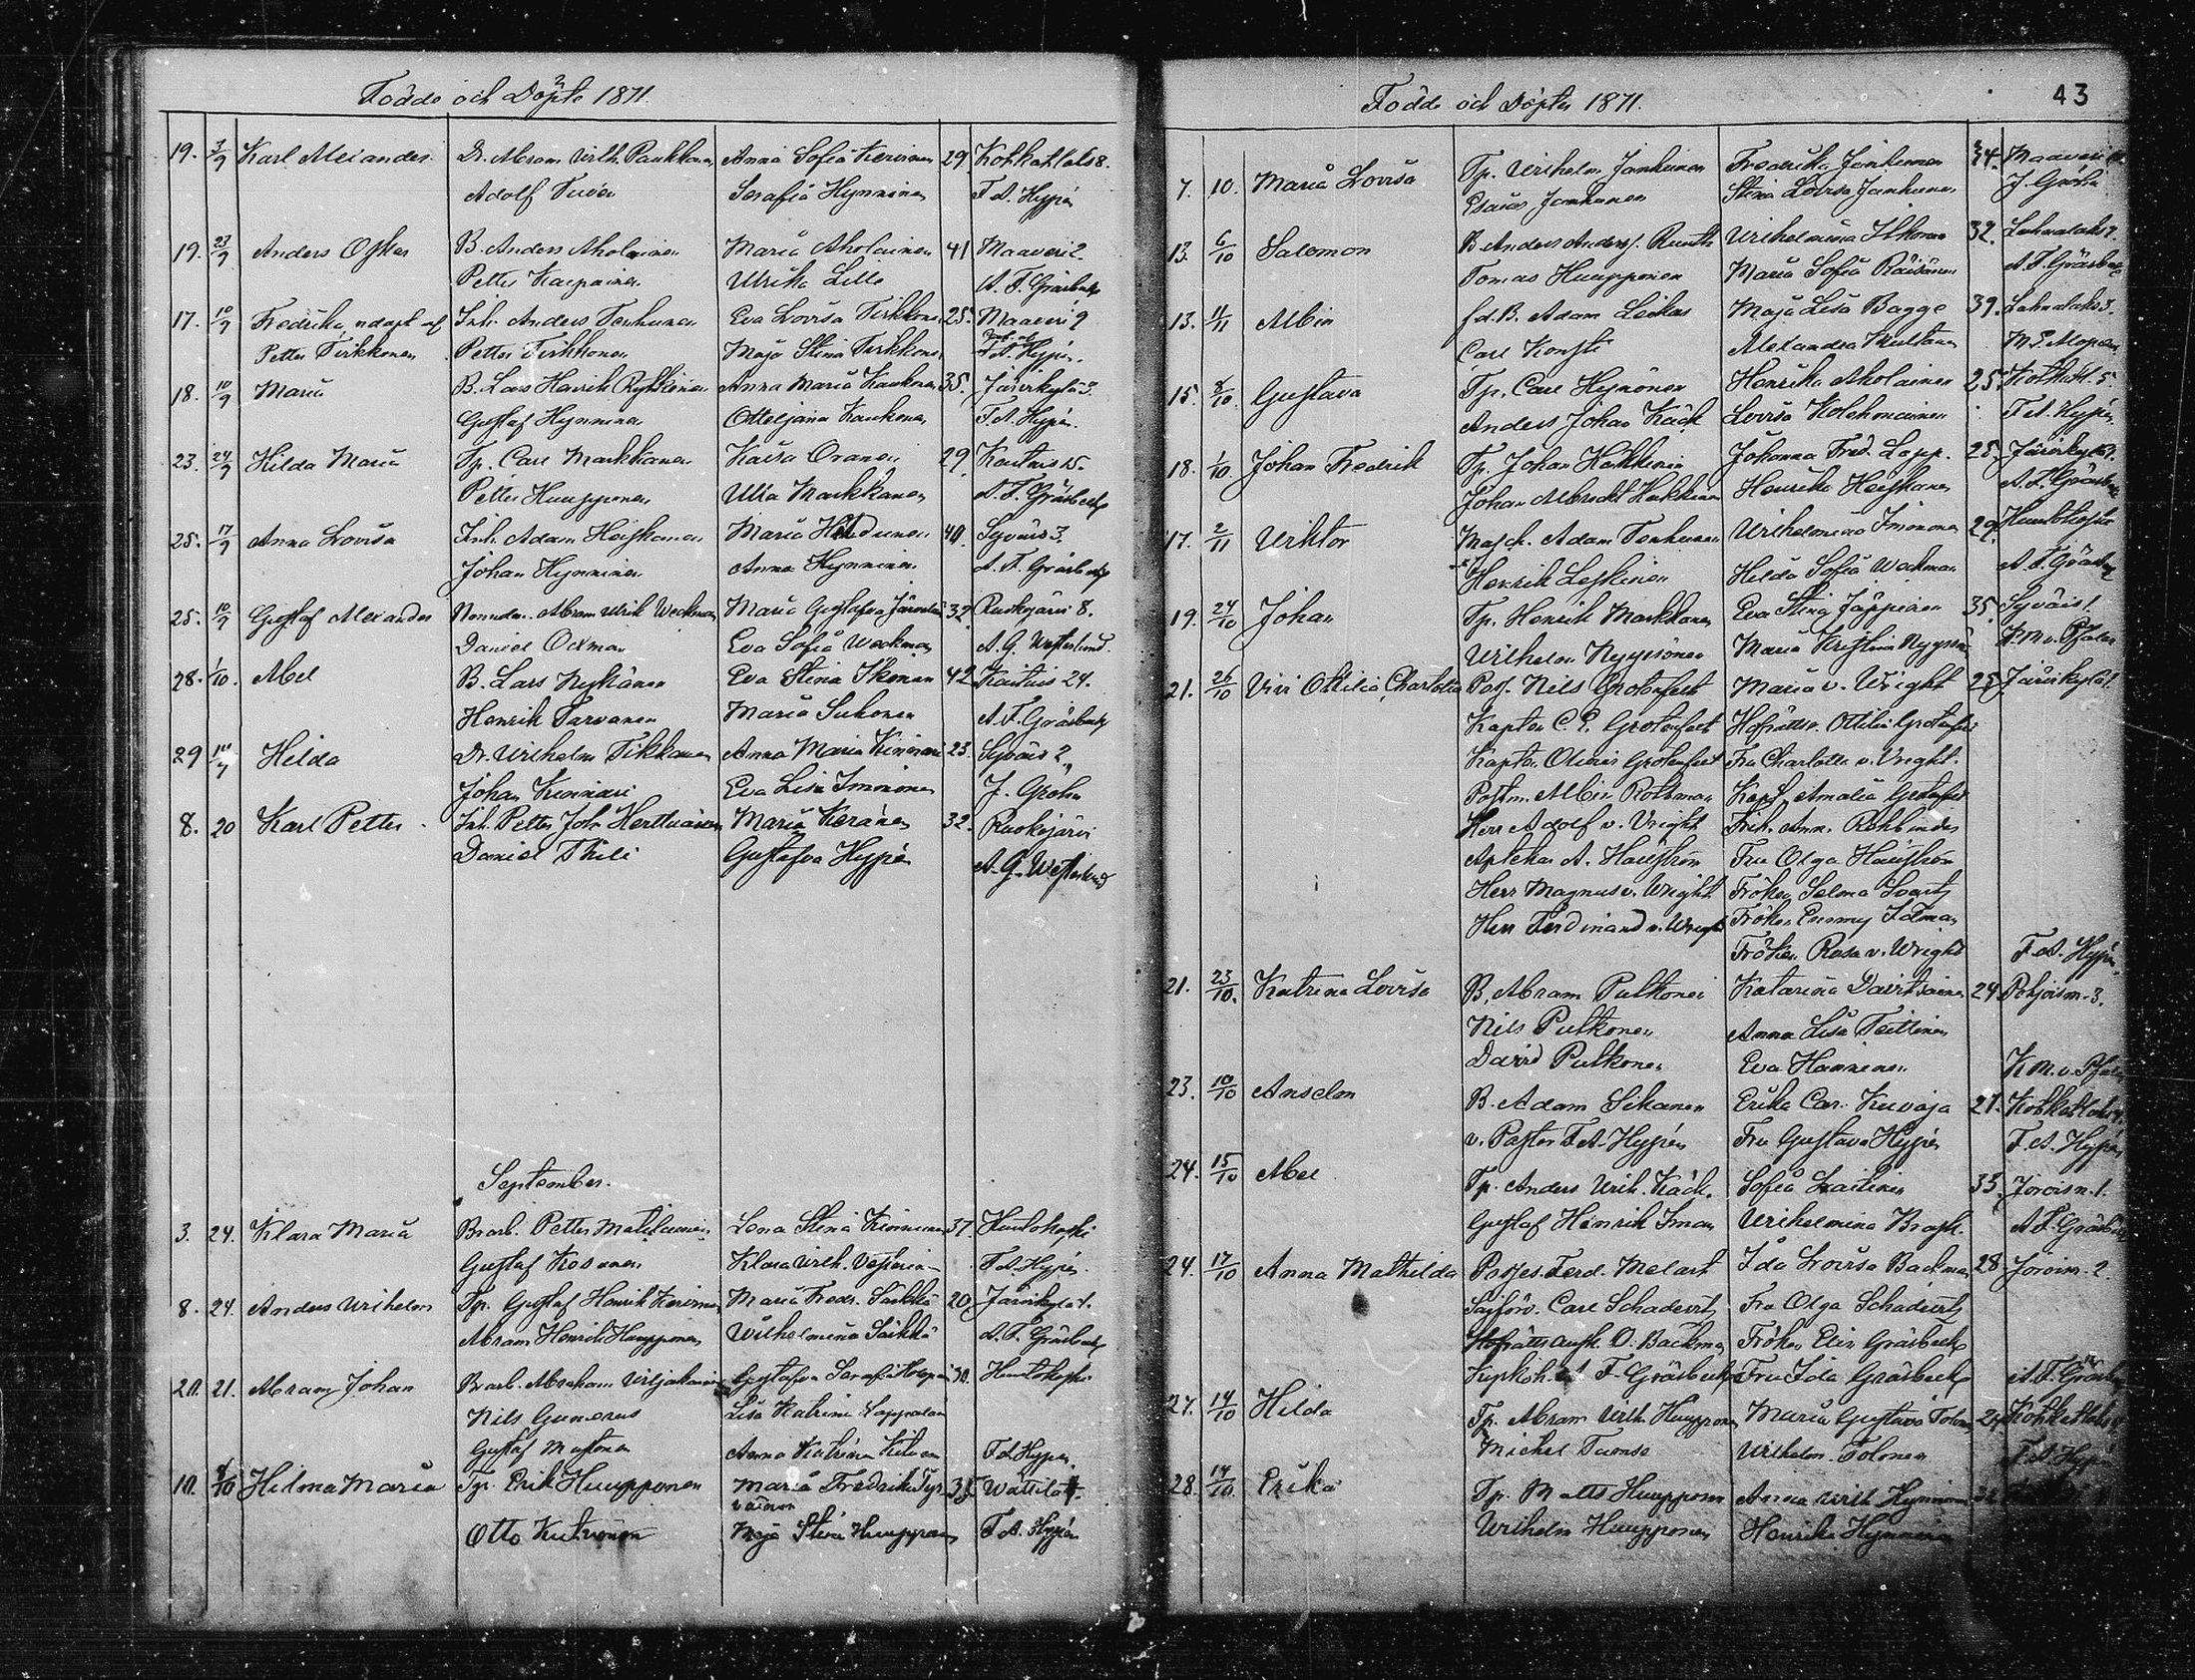 Födde och Döpte 1871.
19. 3/9 Karl Alexander. Dr. Abram Wilh. Paukkonen Anna Sofia Kervinen 29. Kotkatlaks 8.
Adolf Tuven Serafia Hynninen F. A. Hypén
19. 23/9 Anders Oskar B. Anders Aholainen Maria Aholainen 41 Maaveri 2.
Petter Karpainen Ulrika Lille A. F. Gräsbeck
17. 10/9 Fredrika, adopt. af Inh. Anders Tenhunen Eva Lovisa Tirkkonen 25. Maaveri 9
Petter Tirkkonen Petter Tirkkonen Maja Stina Tirkkonen F. A. Hypén.
18. 10/9 Maria B. Lars Henrik Rytkönen Anna Maria Kaukonen 35. Järvikylä 3.
Gustaf Hynninen Otteljana Kaukonen F. A. Hypén.
23. 24/9 Hilda Maria Tp. Carl Markkanen Kaisa Oranen 29. Kaitais 15.
Petter Huupponen Ulla Markkanen A. F. Gräsbeck
25. 17/9 Anna Lovisa Inh. Adam Heiskanen Maria 40. Syväis 3.
Johan Hynninen Anna Hynninen A. F. Gräsbeck
25. 10/9 Gustaf Alexander Abram Ulrik Weckman Maria Gustafva 32. Ruokojärvi 8.
Daniel Oxman Eva Sofia Weckman A. G. Westerlund.
28. 1/10. Abel B. Lars Nykänen Eva Stina Ikonen 42 Kaitais 24.
Henrik Tarvanen Maria Suhonen A. F. Gräsbeck
29 Hilda Dr. Wilhelm Tikkanen Anna Maria 23. Syväis 2.
Johan Eva Lisa Immonen J. Grohn
8. 20 Karl Petter Inh. Petter Joh. Herttuainen Maria Keränen 32. Ruokojärvi
Daniel Thile Gustafva Hypén A. G. Westerlund
September.
3. 24. Klara Maria Brarb. Petter Matilainen Lena Stina Kinnunen 37. Huutokoski
Gustaf Kosonen Klara Wilh. F. A. Hypén.
8. 24. Anders Wilhelm Tp. Gustaf Henrik Kervinen Maria Fredr. Särkkä 20. Järvikylä 1.
Abram Henrik Huupponen Wilhelmina Särkkä A. F. Gräsbeck
20. 21. Abram Johan Brarb. Abraham Viljakainen Gustafva Serafia 30. Huutokoski
Nils Gumerus Lisa Katrina Lappalainen
Gustaf Mustonen Anna Katrina F. A. Hypén.
10. /10 Hilma Maria Tp. Erik Huupponen Maria Fredrika Tyr- 35. Wättilä 4.
väinen
Otto Kutvonen Maja Stina Huupponen F. A. Hypén
Födde och Döpte 1871. 43
7. 10. Maria Lovisa Tp. Wilhelm Jankunen Fredrika Jankunen 34. Maaveri
Esaias Jankunen Stina Lovisa Jankunen J. Gröhn
13. 6/10 Salomon B. Anders Anderss. Ruuth Wilhelmina Ikonen 32. Lahnalaks 2.
Tomas Huupponen Maria Sofia Räisänen A. F. Gräsbeck
13. 11/11 Albin fd. B. Adam Leikas Maja Lisa Bagge 39. Lahnalaks 3.
Carl Kongsti Alexandra Multanen
15. 8/10. Gustava Tp. Carl Hynönen Henrika Aholainen 25. Kotkatl. 5.
Anders Johan Käck Lovisa Kolehmainen F. A. Hypén.
18. 1/10. Johan Fredrik Tp. Johan Hakkinen Johanna Fred. Lapp. 25. Järvikylä 7.
Johan Albrecht Hakkinen Henrika Heiskanen A. F. Gräsbeck
17. 2/11 Wiktor Masch. Adam Tenhunen Wilhelmina Immonen 29. Huutokoski
Henrik Leskinen Hilda Sofia Weckman A. F. Gräsbeck
19. 24/10 Johan Tp. Henrik Markkanen Eva Stina Jäppinen 35. Syväis 1.
Wilhelm Nyyssönen Maria Kristina Nyyssönen K. M. v. Pfaler
21. 26/10 Vivi Ottilia Charlotta Poss. Nils Grotenfelt Maria v. Wright 25 Järvikylä 1.
Kapten C. E. Grotenfelt Hofrätts. Ottilia Grotenfelt
Kapten Olivier Grotenfelt Fru Charlotta v. Wright.
Postm. Albin Rotkman Kapt. Amalia Grotenfelt
Herr Adolf v. Wright Frih. Ann. Rehbinder
Apteker A. Hällström Fru Olga Hällström
Herr Magnus v. Wright. Fröken Selma Svartz
Herr Ferdinand v. Wright Fröken Emmy Idman
Fröken Rosa v. Wright F. A. Hypén.
21. 23/10. Katrina Lovisa B. Abram Pulkonen Katarina Davitsainen 24. Pohjoism. 3.
Nils Pulkonen Anna Lisa Teittinen
David Pulkonen Eva Hänninen K. M. v. Pfaler
23. 10/10 Anselm B. Adam Sikanen Erika Car. Kuvaja 27. Kotkatlaks
v. Pastor F. A. Hypén Fru Gustava Hypén F. A. Hypén
24. 15/10 Abel Tp. Anders Wilh. Käck. Sofia Laitinen 35. Jorois n. 1.
Gustaf Henrik Iman Wilhelmina Brask. A. F. Gräsbeck
24. 17/10 Anna Mathilda Posses. Ferd. Melart Ida Lovisa Backman 28 Joroin. 2.
Carl Schadewitz Fru Olga Schadewitz
Hofrätts ausk. O. Backman Fröken Elin Gräsbeck
A. F. Gräsbeck Fru Ida Gräsbeck A. F. Gräsbeck
27. 14/10 Hilda Tp. Abram Wilh. Huupponen Maria Gustava Tolonen 24. Kotkatlaks
Michel Tuonse Wilhelm. Tolonen F. A. Hypén
28. 14/10 Erika Tp. Matts Huupponen Anna Wilh. Hynninen
Wilhelm Huupponen Henrika Hynninen